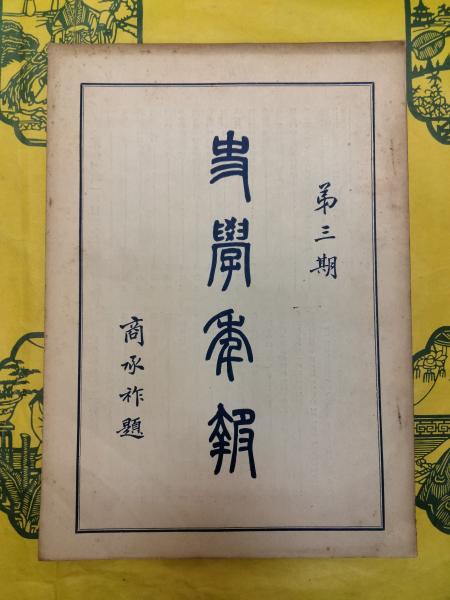 第三期
史學年報
商承祚題